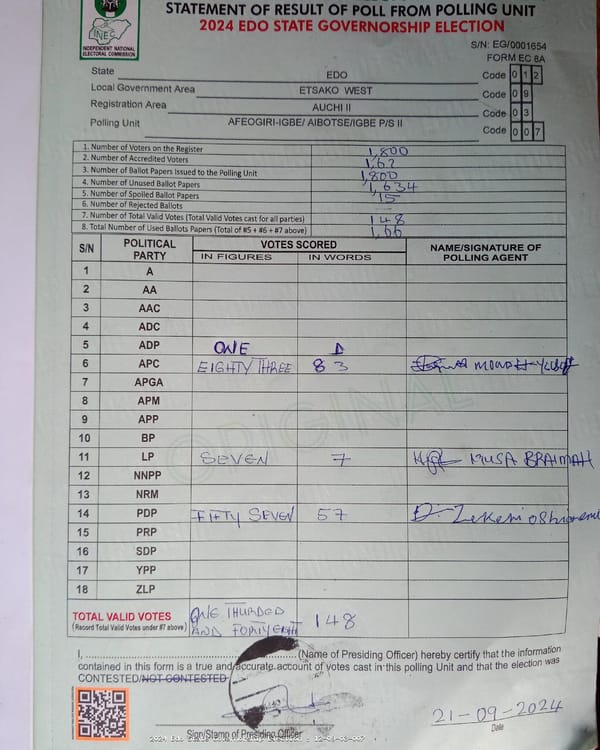 INEC
INDEPENDENT NATIONAL
ELECTORAL COMMISSION
STATEMENT OF RESULT OF POLL FROM POLLING UNIT
2024 EDO STATE GOVERNORSHIP ELECTION
S/N: EG/0001654
FORM EC 8A
State EDO Code 0 1 2
Local Government Area ETSAKO WEST Code 0 9
Registration Area AUCHI II Code 0 3
Polling Unit AFEOGIRI-IGBE/ AIBOTSE/IGBE P/S II Code 0 0 7
1. Number of Voters on the Register 1,800
2. Number of Accredited Voters 1,62
3. Number of Ballot Papers Issued to the Polling Unit 1,800
4. Number of Unused Ballot Papers 1,634
5. Number of Spoiled Ballot Papers 15
6. Number of Rejected Ballots
7. Number of Total Valid Votes (Total Valid Votes cast for all parties) 148
8. Total Number of Used Ballots Papers (Total of #5 + #6 + #7 above) 1,66
S/N POLITICAL PARTY VOTES SCORED NAME/SIGNATURE OF POLLING AGENT
IN FIGURES IN WORDS
1 A
2 AA
3 AAC
4 ADC
5 ADP ONE 1
6 APC EIGHTY THREE 83
7 APGA
8 APM
9 APP
10 BP
11 LP SEVEN 7 MUSA BRAIMAH
12 NNPP
13 NRM
14 PDP FIFTY SEVEN 57
15 PRP
16 SDP
17 YPP
18 ZLP
ORIGINAL
TOTAL VALID VOTES ONE THURDED
(Record Total Valid Votes under #7 above) AND FORTYEIGHT 148
I, (Name of Presiding Officer) hereby certify that the information
contained in this form is a true and accurate account of votes cast in this polling Unit and that the election was
CONTESTED/NOT CONTESTED
21-09-2024
Sign/Stamp of Presiding Officer Date